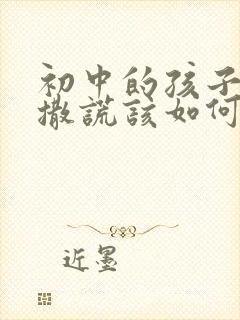 初中的孩子
撒谎该如何
近墨